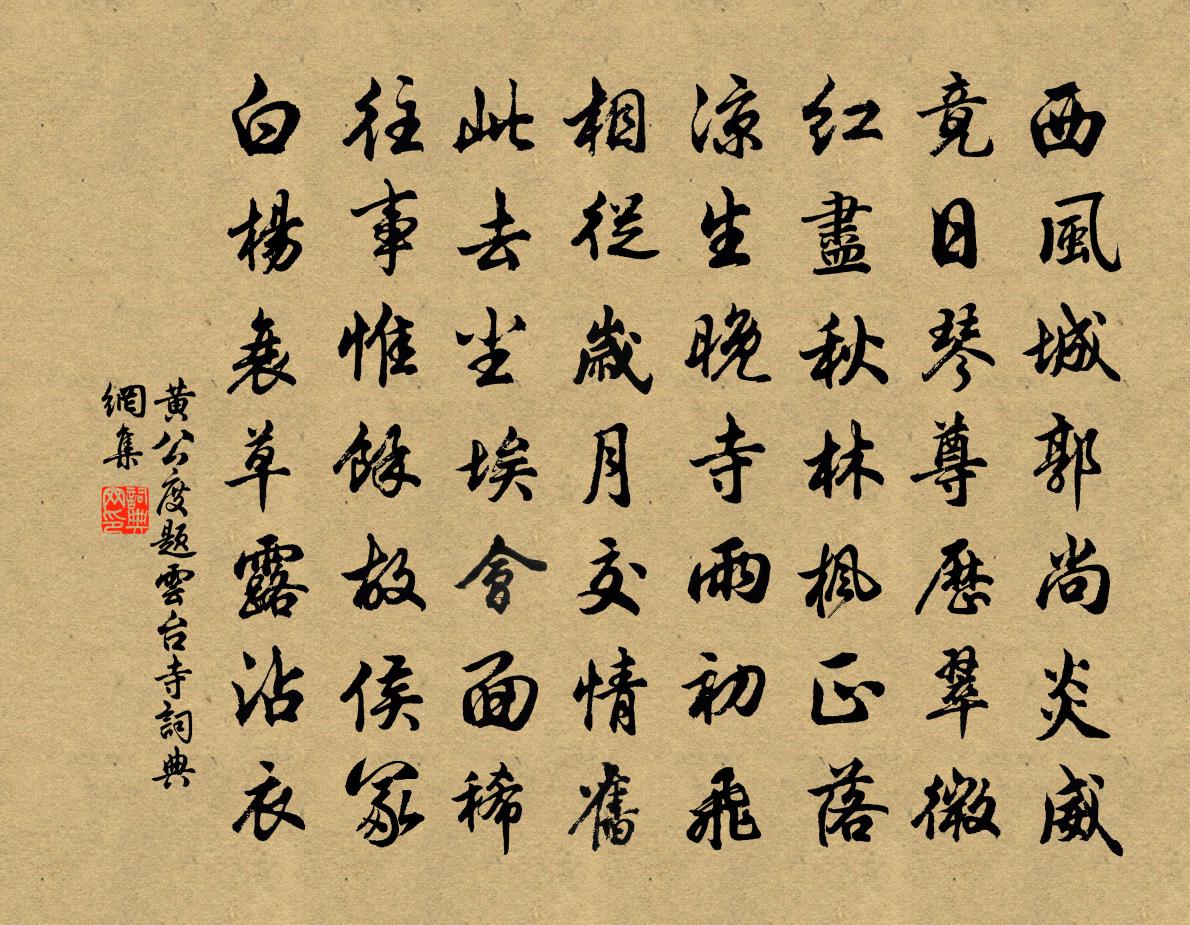 西風城郭尚炎威
竟日琴尊歷翠微
紅盡秋林楓正落
涼生晚寺雨初飛
相從歲月交情舊
此去尘埃會面稀
往事惟餘故侯冢
白楊衰草露沾衣
黃公度題雲台寺詞典
網集
詞典
网印